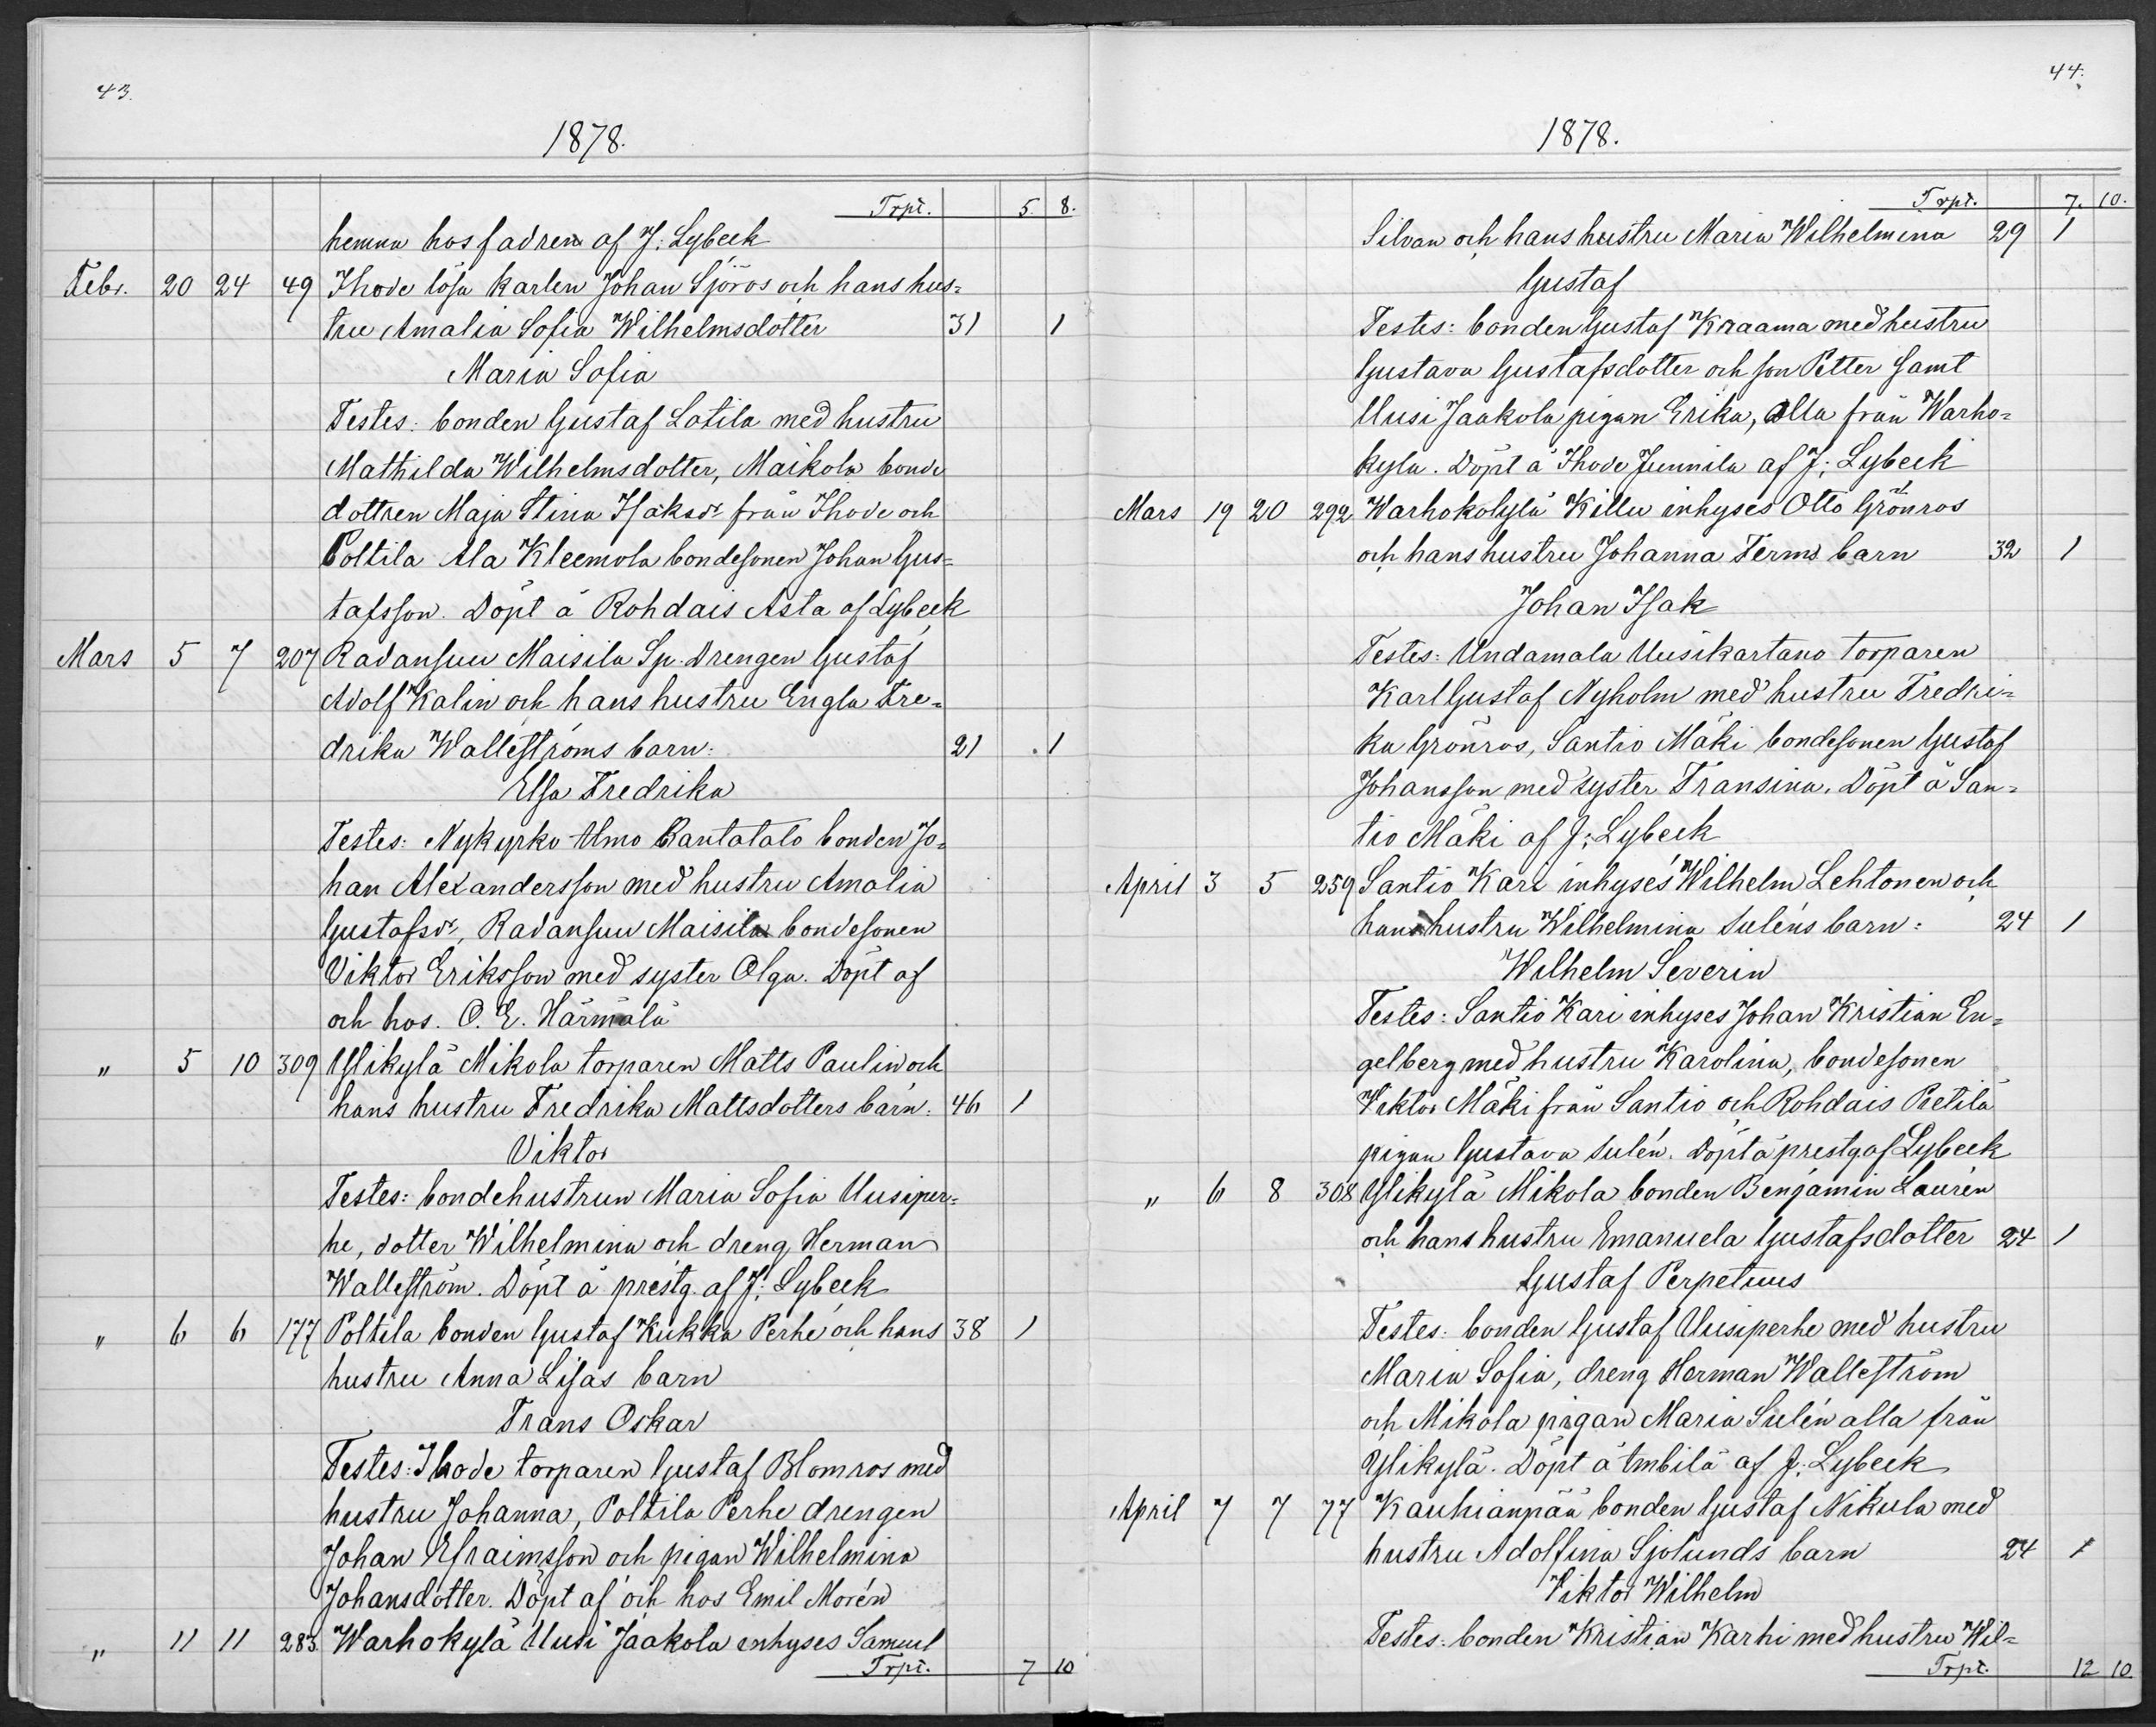 43.
1878.
Trpt. 5. 8.
hemma hos fadren af J. Lybeck
Febr. 20 24 49 Ihode lösa karlen Johan Sjöros och hans hus-
tru Amalia Sofia Wilhelmsdotter 31 1
Maria Sofia
Testes: bonden Gustaf Lotila med hustru
Mathilda Wilhelmsdotter, Maikola bonde
dottren Maja Stina Isaksdr från Ihode och
Poltila Ala Kleemola bondesonen Johan Gus-
tafsson. Döpt å Rohdais Asta af Lybeck
Mars 5 7 207 Radansuu Maisila Sp. Drengen Gustaf
Adolf Kalin och hans hustru Engla Fre-
drika Walleströms barn. 21 1
Elsa Fredrika
Testes: Nykyrko Ulmo Rantatalo bonden Jo-
han Alexandersson med hustru Amalia
Gustafsdr, Radansuu Maisila bondesonen
Viktor Eriksson med syster Olga. Döpt af
och hos. O. E. Härmälä
" 5 10 309 Ylikylä Mikola torparen Matts Paulin och
hans hustru Fredrika Mattsdotters barn. 46 1
Viktor
Testes: bondehustrun Maria Sofia Uusiper-
he, dotter Wilhelmina och dreng Herman
Walleström. Döpt å prestg. af J. Lybeck
" 6 6 177 Poltila bonden Gustaf Kukka Perhe och hans 38 1
hustru Anna Lisas barn
Frans Oskar
Testes: Ihode torparen Gustaf Blomros med
hustru Johanna, Poltila Perhe drengen
Johan Efraimsson och pigan Wilhelmina
Johansdotter. Döpt af och hos Emil Morén
" 11 11 283. Warhokylä Uusi Jaakola inhyses Samuel
Trpt. 7 10
44.
1878.
Trpt. 7. 10.
Silvan och hans hustru Maria Wilhelmina 29 1
Gustaf
Testes: bonden Gustaf Kraama med hustru
Gustava Gustafsdotter och son Petter samt
Uusi Jaakola pigan Erika, alla från Warho-
kyla. Döpt å Ihode Junnila af J. Lybeck
Mars 19 20 292 Warhokolylä Killu inhyses Otto Grönros
och hans hustru Johanna Ferms barn 32 1
Johan Isak
Testes: Undamala Uusikartano torparen
Karl Gustaf Nyholm med hustru Fredri-
ka Grönros, Santio Mäki bondesonen Gustaf
Johansson med syster Fransina. Döpt å San-
tio Mäki af J. Lybeck
April 3 5 259 Santio Kari inhyses Wilhelm Lehtonen och
hans hustru Wilhelmina Suléns barn: 24 1
Wilhelm Severin
Testes: Santio Kari inhyses Johan Kristian En-
gelberg med hustru Karolina, bondesonen
Viktor Mäki från Santio och Rohdais Pietilä
pigan Gustava Sulén. Döpt å prestg af Lybeck
" 6 8 308 Ylikylä Mikola bonden Benjamin Laurén
och hans hustru Emanuela Gustafsdotter 24 1
Gustaf Perpetuus
Testes: bonden Gustaf Uusiperhe med hustru
Maria Sofia, dreng Herman Walleström
och Mikola pigan Maria Sulén alla från
Ylikylä. Döpt å Anbilä af J. Lybeck
April 7 7 77 Kauhianpää bonden Gustaf Nikula med
hustru Adolfina Sjölunds barn 24 1
Viktor Wilhelm
Testes: bonden Kristian Karhi med hustru Wil-
Trpt. 12 10.